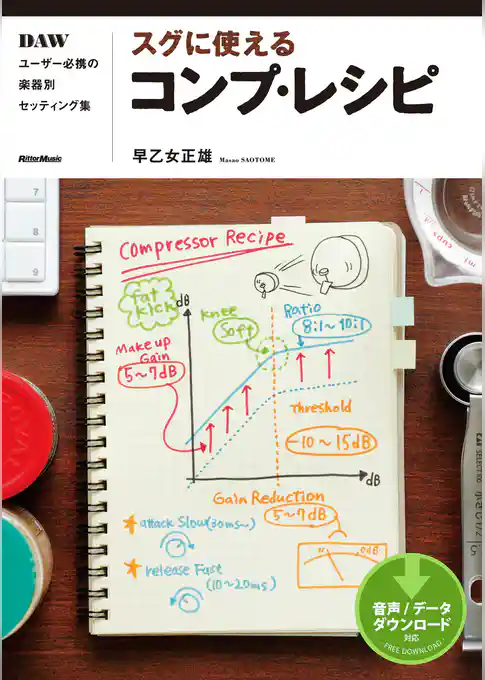 DAW
ユーザー必携の
楽器別
セッティング集
スグに使える
コンプ・レシピ
RittorMusic
早乙女正雄 Masao SAOTOME
7
8
9
Compressor Recipe
fat
kick
dB
knee
Soft
Ratio
8:1~10:1
Make up
Gain
5~7dB
Threshold
-10~15dB
dB
Gain Reduction
5~7dB
attack Slow(30ms~)
release Fast
(10~20ms)
0dB
cups
ml
SELECTION
音声/データ
ダウンロード
対応
FREE DOWNLOAD